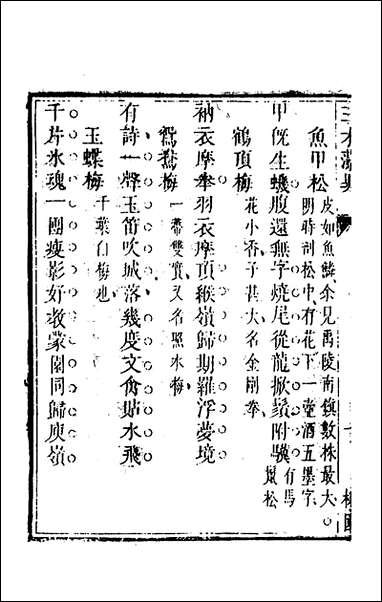 魚甲松
皮如魚鱗余見禹陵南鎮數株最大
開時剖松中有花下一壺酒五墨字
甲旣生蟣腹還無字燒尾從龍掀鬚附驥
有馬
鬣松
鶴頂梅
花小香子甚大名金剛拳
衲衣摩拳羽衣摩頂緱嶺歸期羅浮夢境
鴛鴦梅
一蒂雙實又名照水梅
有詩一聲玉笛吹城落幾度文禽貼水飛
玉蝶梅
千葉白梅也
千片氷魂一團瘦影好教蒙園同歸庾嶺